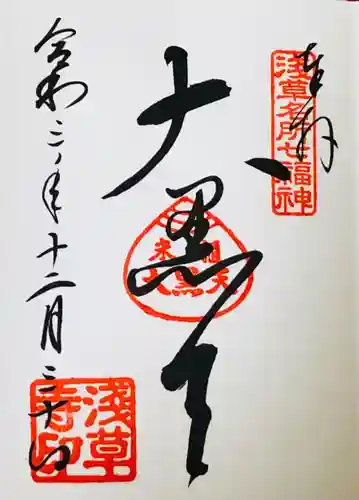 奉拝
浅草名所七福神
大黒天
米福
大黒天
令和三年十二月三十日
浅草
寺印